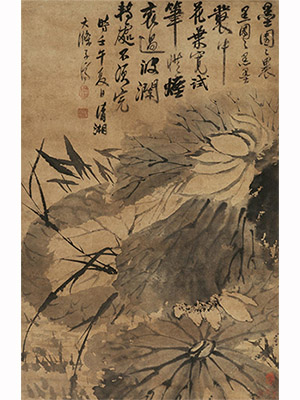 墨團〻裏
黑團〻墨黑
叢中
花葉寬試
看筆從煙
裏過波瀾
轉處不須完
時壬午夏日清湘
大滌子